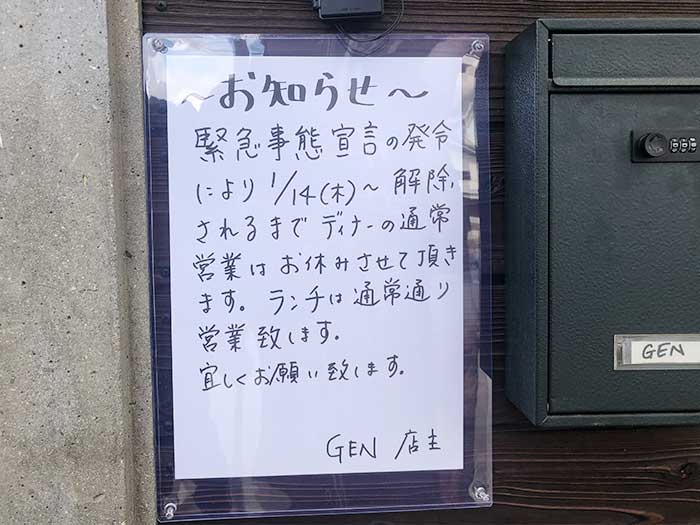 ～お知らせ～
緊急事態宣言の発令
により 1/14(木)～ 解除
されるまで ディナーの通常
営業は お休みさせて頂き
ます。ランチは通常通り
営業致します。
宜しくお願い致します。
GEN 店主
GEN